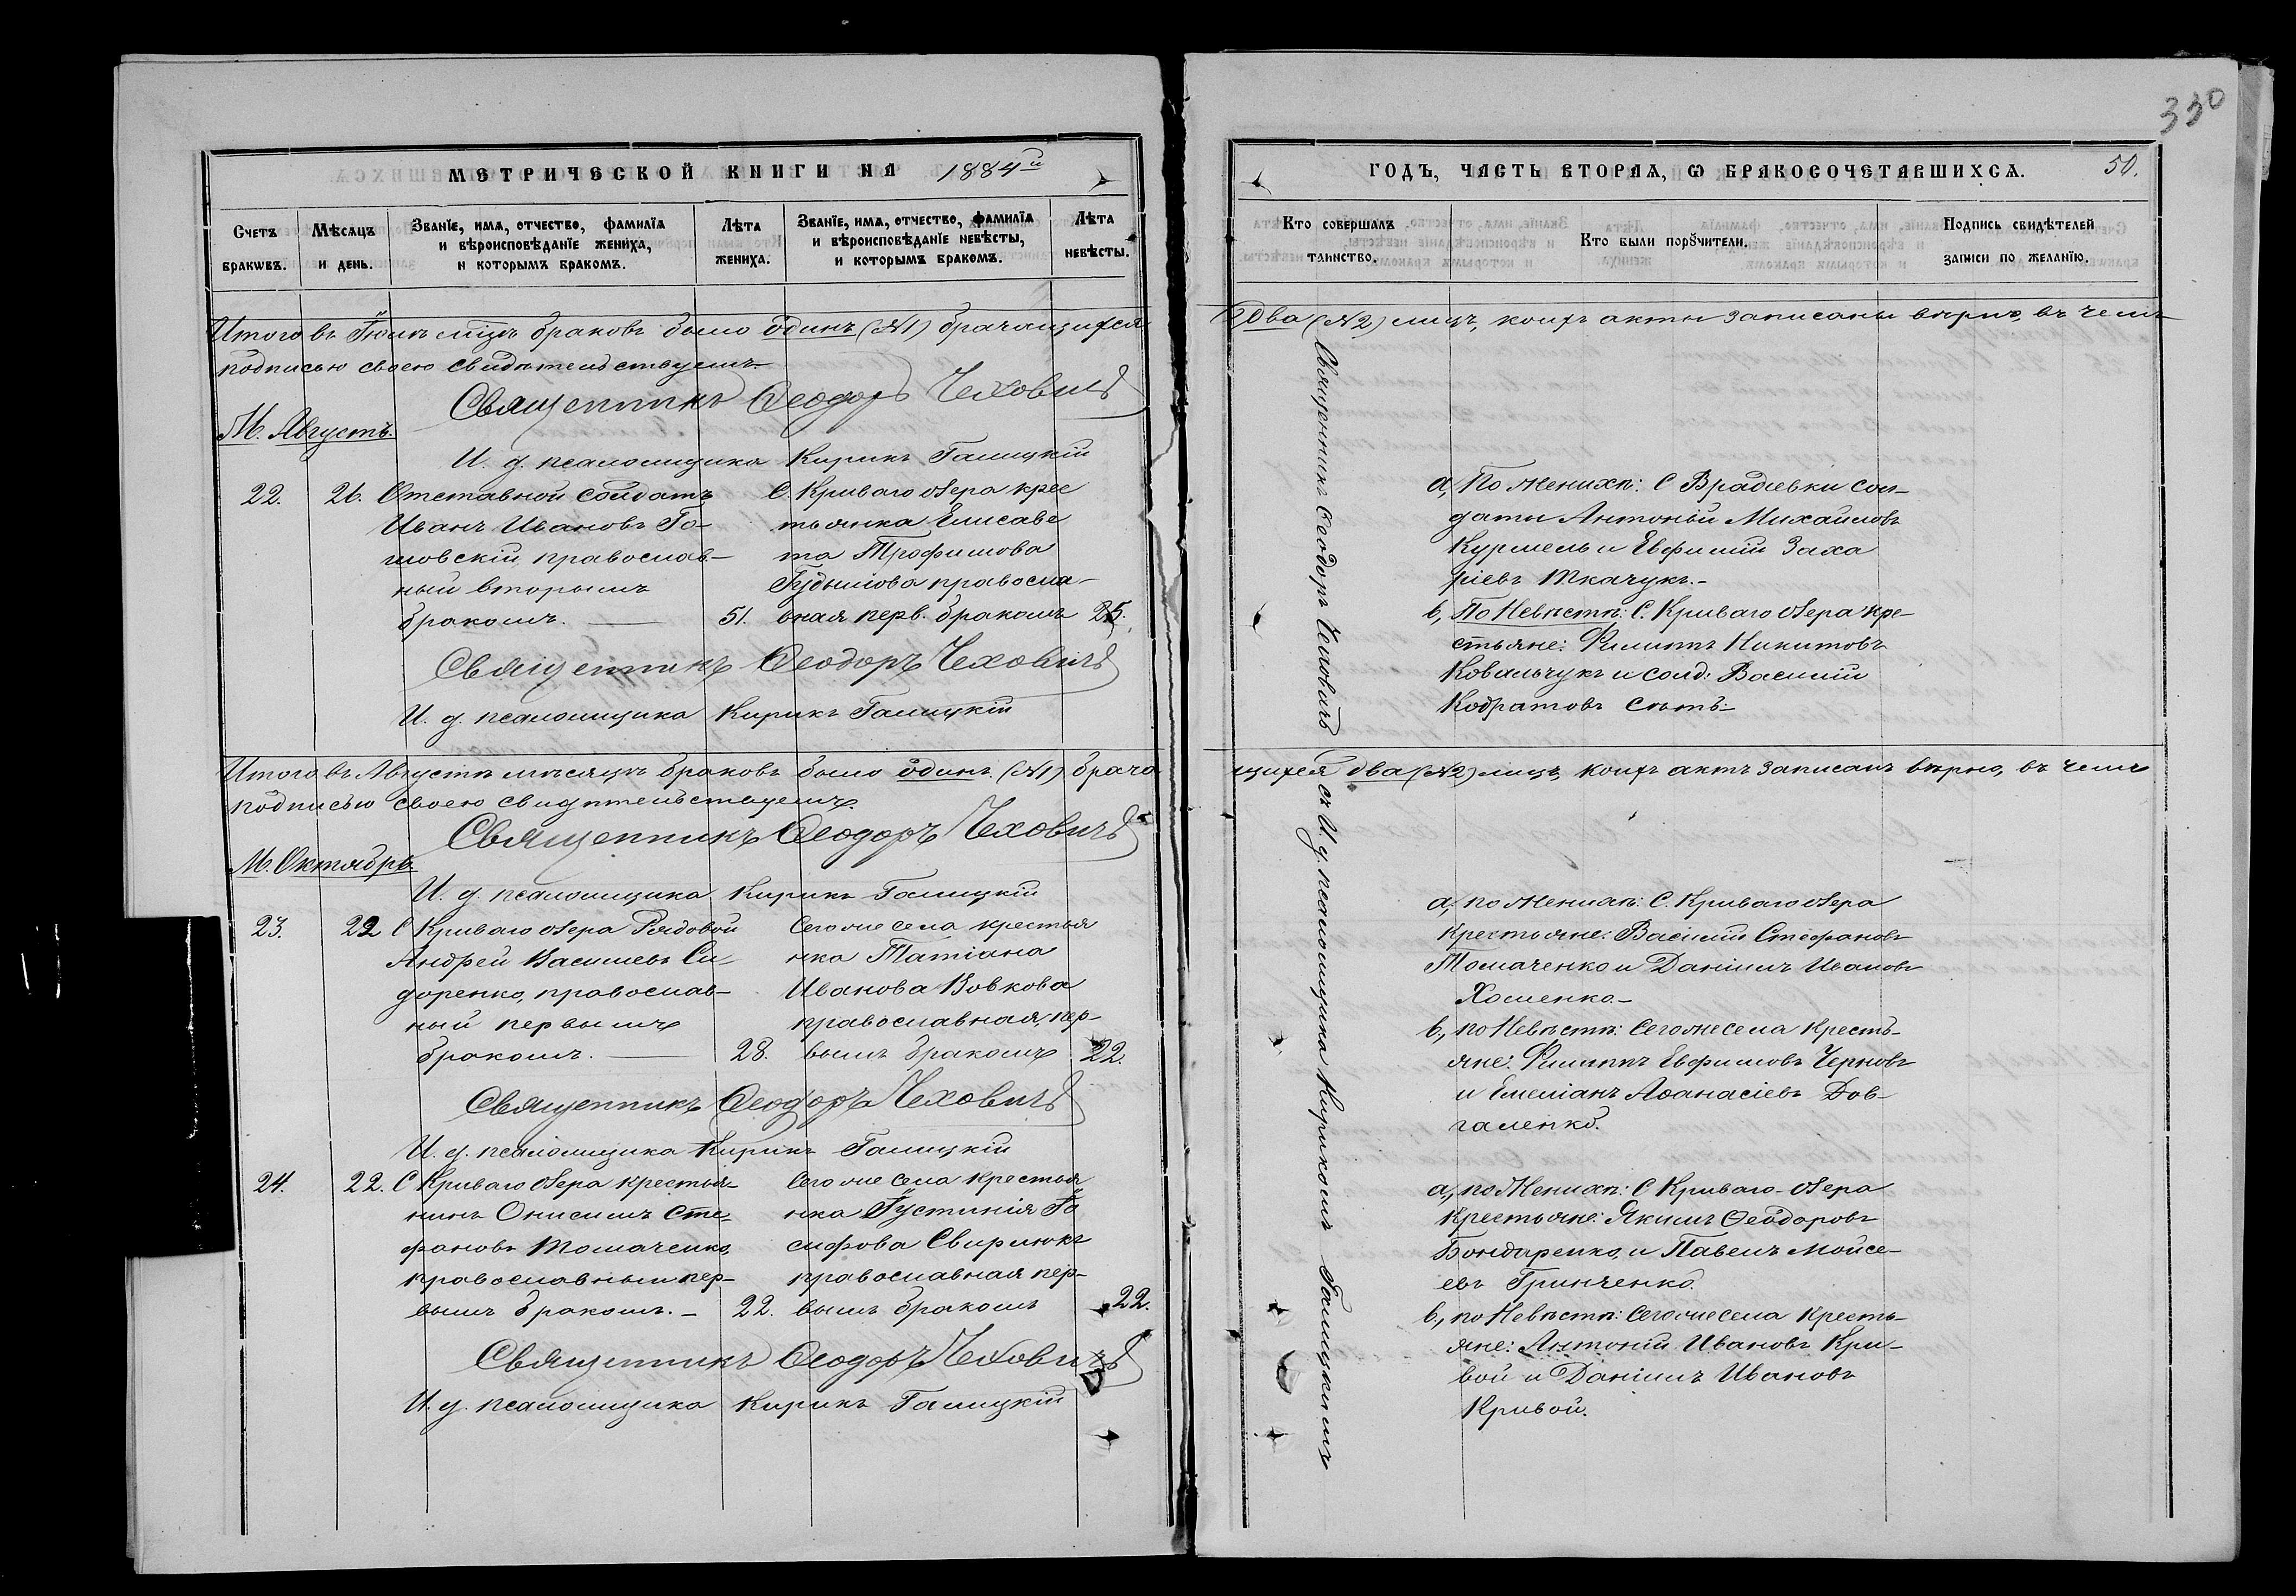 330
МЕТРИЧЕСКОЙ КНИГИ НА 1884й
ГОДЪ, ЧАСТЬ ВТОРАѦ, Ѡ БРАКОСОЧЕТАВШИХСѦ.
50.
Счетъ браковъ.
Мѣсѧцъ и день.
Званїе, имѧ, отчество, фамилїѧ
и вѣроисповѣданїе жениха,
и которымъ бракомъ.
Лѣта жениха.
Званїе, имѧ, отчество, фамилїѧ
и вѣроисповѣданїе невѣсты,
и которымъ бракомъ.
Лѣта невѣсты.
Кто совершалъ таинство.
Кто были порꙋчители.
Подпись свидѣтелей
записи по желанїю.
Итого въ Іюлѣ м͠цѣ браковъ было одинъ (№1) брачащихся
два (№2) лицъ, коихъ акты записаны вѣрно, въ чемъ
подписью своею свидѣтельствуемъ
Священникъ Ѳеодоръ Чеховичъ
М. Августъ.
И. д. псаломщика Кирикъ Галицкій
22. 26. Отставной солдатъ
Иванъ Ивановъ Го-
ловскій, православ-
ный вторымъ
бракомъ. — 51.
С. Криваго Озера крес
тьянка Елисаве
та Трофимова
православ-
ная перв. бракомъ 25.
Священникъ Ѳеодоръ Чеховичъ
И. д. псаломщика Кирикъ Галицкій
а, По женихѣ: С Врадіевки сол-
даты Антоній Михайловъ
Курмель и Евфимій Заха
ріевъ Ткачукъ.-
в, По Невѣстѣ: С. Криваго Озера кре-
стьяне: Филиппъ Никитовъ
Ковальчукъ и солд. Василій
Кодратовъ
Итого въ Августѣ мѣсяцѣ браковъ было одинъ (№1) брача
щихся два (№2) лицъ, коихъ актъ записанъ вѣрно, въ чемъ
подписью своею свидѣтельствуемъ.
Священникъ Ѳеодоръ Чеховичъ
М. Октябрь
И. д. псаломщика Кирикъ Галицкій
23. 22 С Криваго Озера Рядовой
Андрей Василіевъ Си-
доренко, православ-
ный первымъ
бракомъ. — 28.
Сегоже села крестья
нка Татіана
Иванова Вовкова
православная, пер-
вымъ бракомъ 22.
Священникъ Ѳеодоръ Чеховичъ
И. д. псаломщика Кирикъ Галицкій
а, по Женихѣ: С. Криваго Озера
крестьяне: Василій Стефановъ
Томаченко и Даніилъ Ивановъ
Хоменко.-
в., по Невѣстѣ: Сегоже села кресть-
яне: Филиппъ Евфимовъ Черновъ
и Емеліанъ Аѳанасіевъ Дов-
галенко.
24. 22. С Криваго Озера крестья-
нинъ Онисимъ Сте-
фановъ Томаченко,
православный пер-
вымъ бракомъ. - 22.
Сегоже села крестья
нка Іустинія Іо
сифова Свирнюкъ
православная пер-
вымъ бракомъ 22.
Священникъ Ѳеодоръ Чеховичъ
И. д. псаломщика Кирикъ Галицкій
а., по Женихѣ: С Криваго-Озера
крестьяне: Якимъ Ѳеодоровъ
Бондаренко, и Павелъ Мойсе-
евъ Гринченко.
в., по Невѣстѣ: Сегоже села кресть-
яне: Антоній Ивановъ Кри-
вой и Даніилъ Ивановъ
Кривой.
Священникъ Ѳеодоръ Чеховичъ съ И. д. псаломщика Кирикомъ Галицкимъ